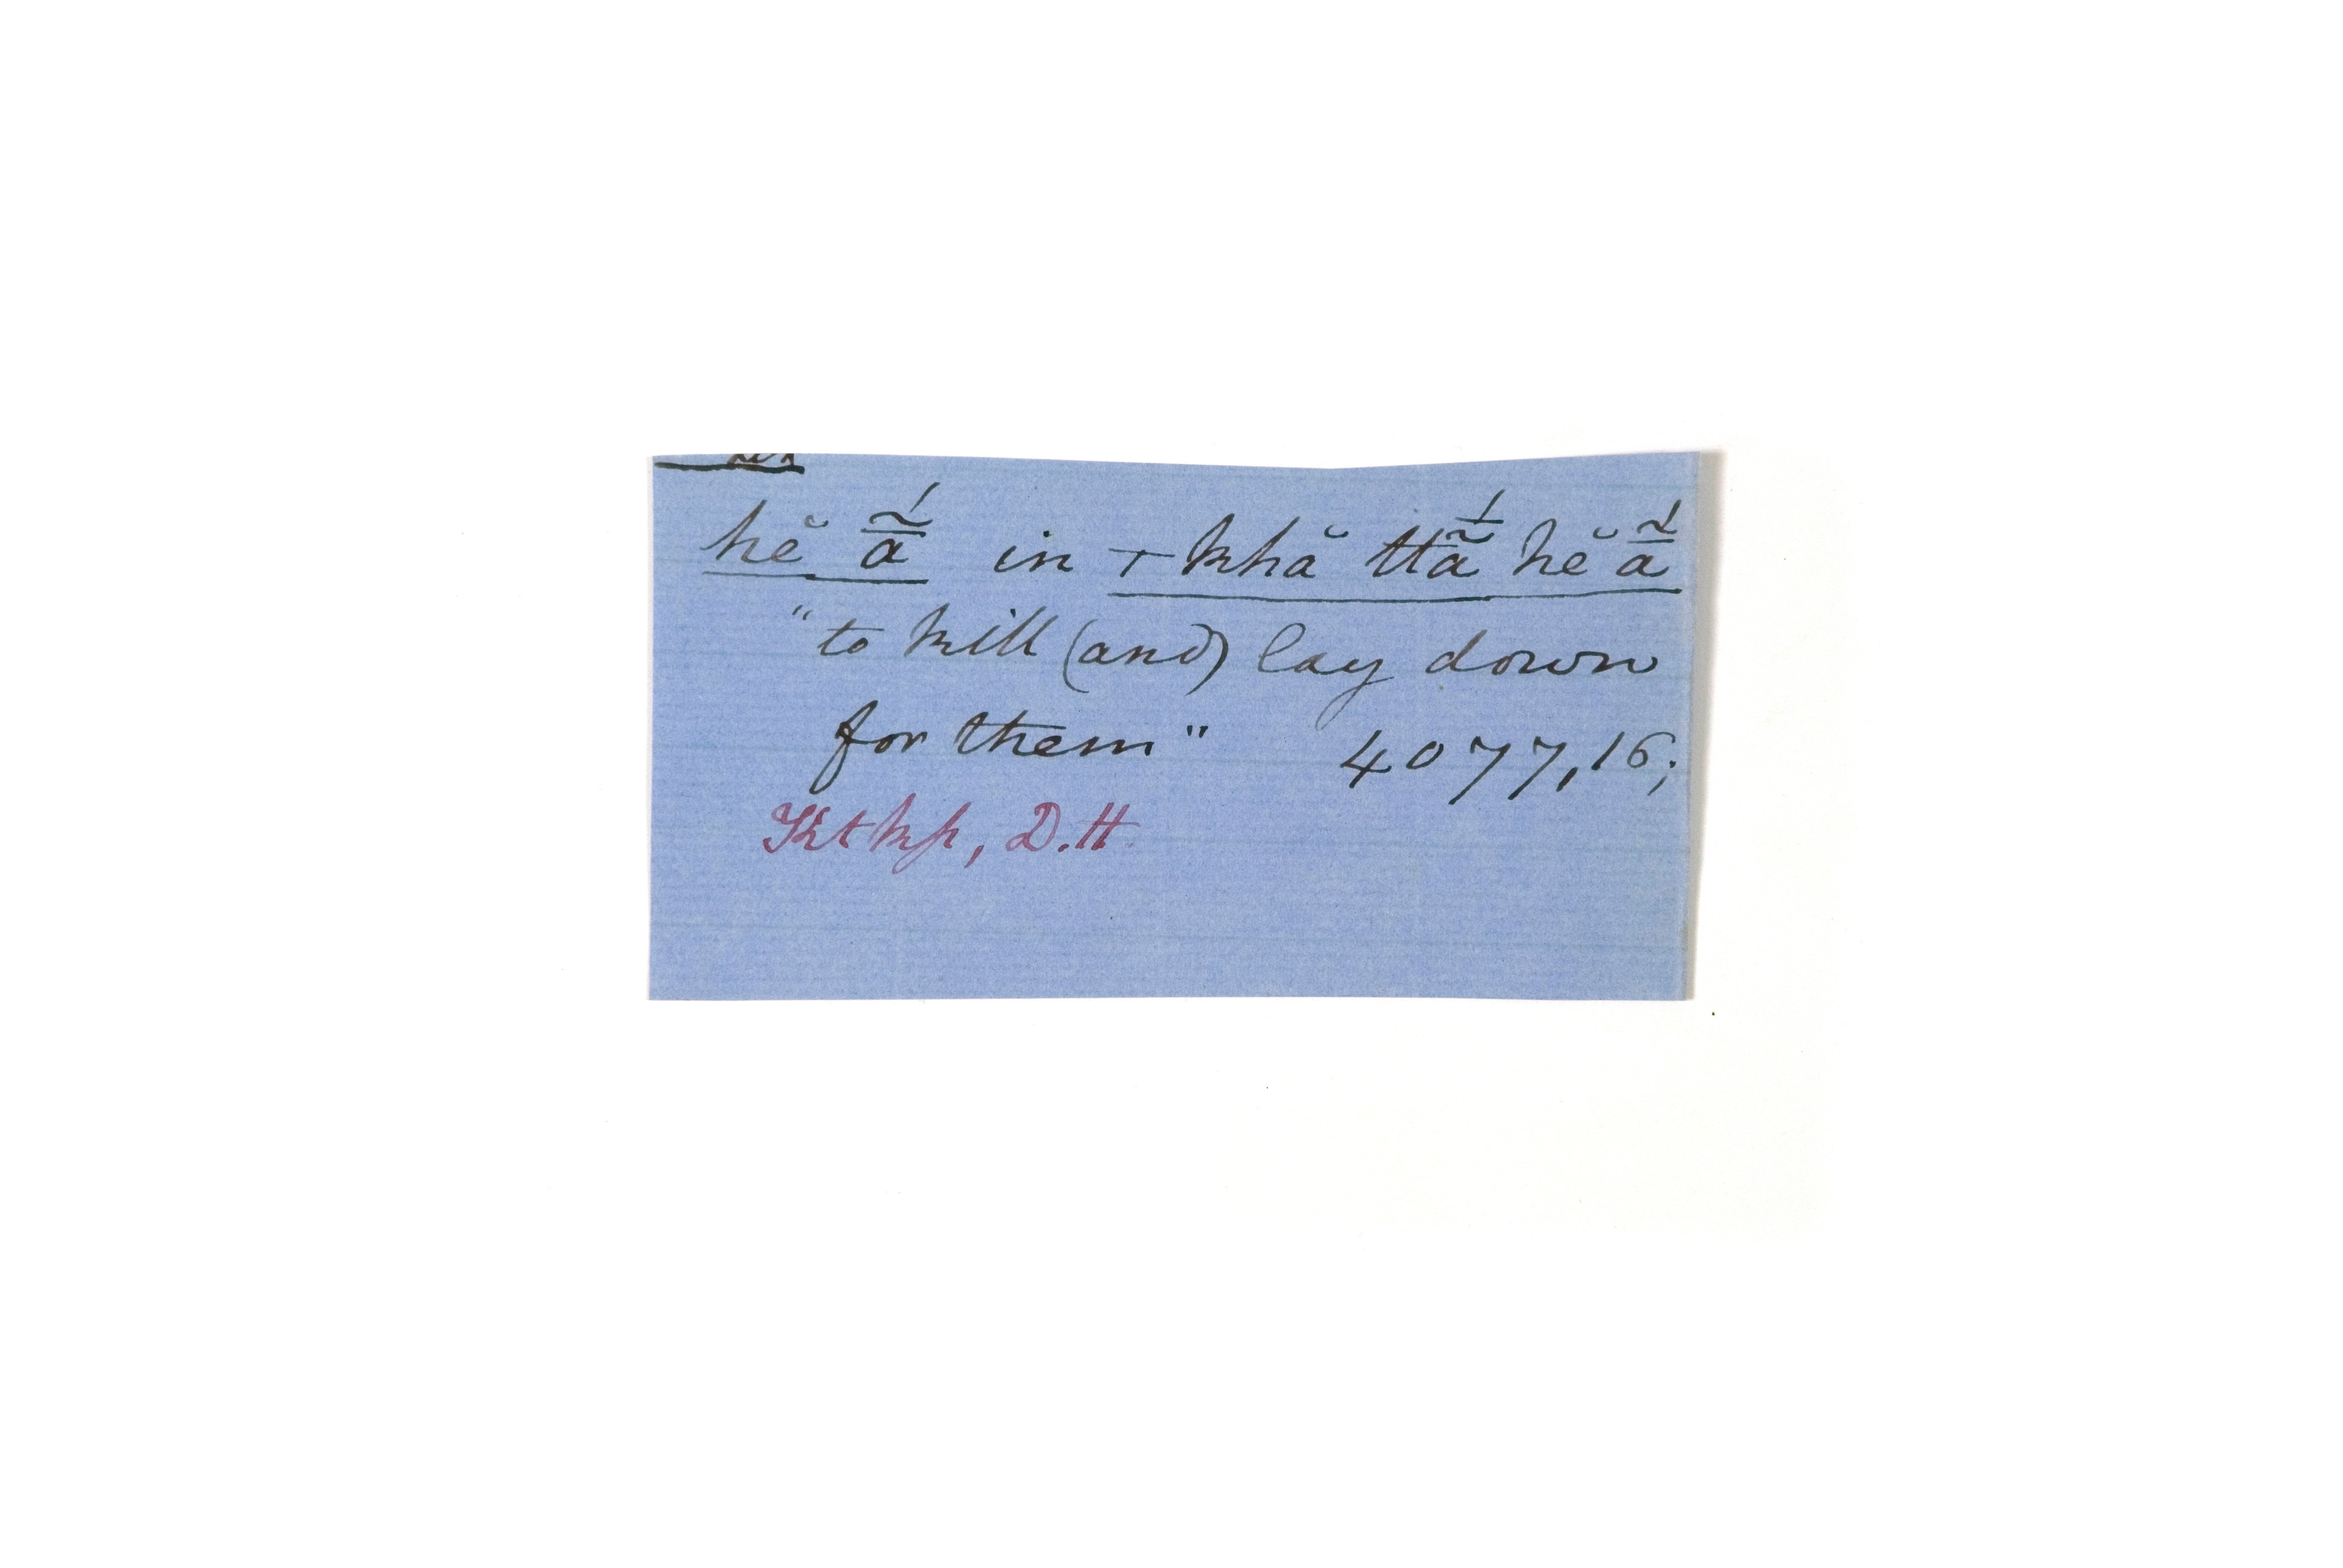 hĕ ā̃́ in ⊤khă ttā̃́ hĕ ā̃́
"to kill (and) lay down
for them" 4077,16;
Ktkp, D.H.